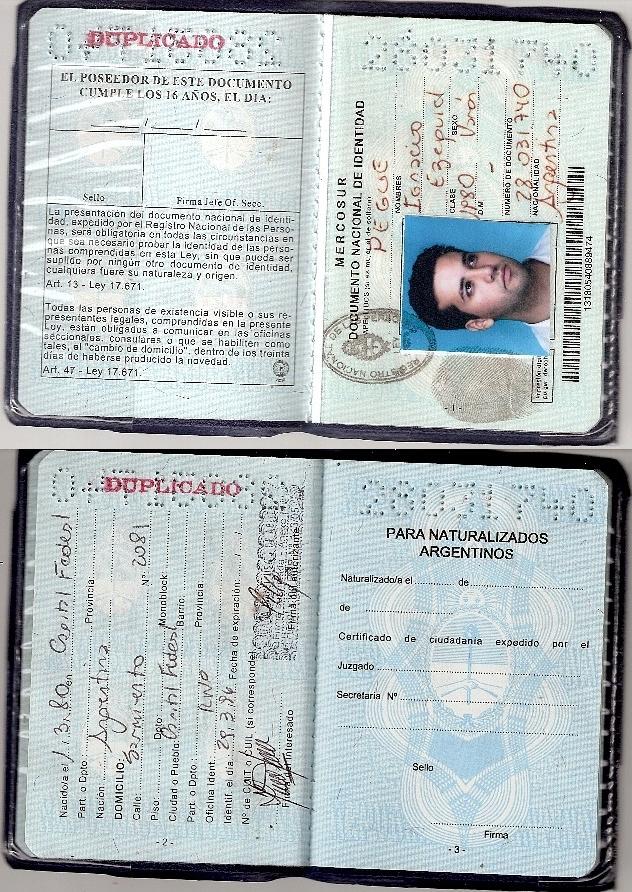 DUPLICADO
EL POSEEDOR DE ESTE DOCUMENTO
CUMPLE LOS 16 AÑOS, EL DIA:
/ /
Sello Firma Jefe Of. Secc.
La presentación del documento nacional de identi-
dad, expedido por el Registro Nacional de las Perso-
nas, será obligatoria en todas las circunstancias en
que sea necesario probar la identidad de las perso-
nas comprendidas en esta Ley, sin que pueda ser
suplido por ningún otro documento de identidad,
cualquiera fuere su naturaleza y origen.
Art. 13 - Ley 17.671.
Todas las personas de existencia visible o sus re-
presentantes legales, comprendidas en la presente
Ley, están obligados a comunicar en las oficinas
seccionales, consulares o que se habiliten como
tales, el "cambio de domicilio", dentro de los treinta
días de haberse producido la novedad.
Art. 47 - Ley 17.671.
28031740
MERCOSUR
DOCUMENTO NACIONAL DE IDENTIDAD
PEGUE
NOMBRES
Ignacio
Ezequiel
CLASE SEXO
1980
D.M.
-
NUMERO DE DOCUMENTO
28.031.740
NACIONALIDAD
Argentina
- 1 -
DUPLICADO
Nacido/a el 1.3.80 en Capital Federal
Part. o Dpto.: Provincia:
Nación: Argentina
DOMICILIO:
Calle: Sarmiento Nº 2081
Piso: Dpto: Monoblock:
Ciudad o Pueblo: Capital Federal Barrio:
Part. o Dpto.: Provincia:
Oficina Ident.:
Identif. el día: Fecha de expiración:
Nº de CUIT o CUIL (si corresponde)
- 2 -
28031740
PARA NATURALIZADOS
ARGENTINOS
Naturalizado/a el de
de
Certificado de ciudadanía expedido por el
Juzgado
Secretaría Nº
Sello
Firma
- 3 -